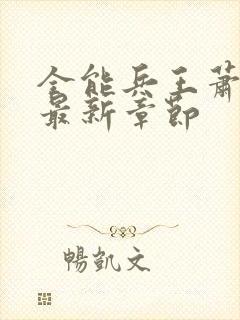 全能兵王蕭
最新章節
暢凱文